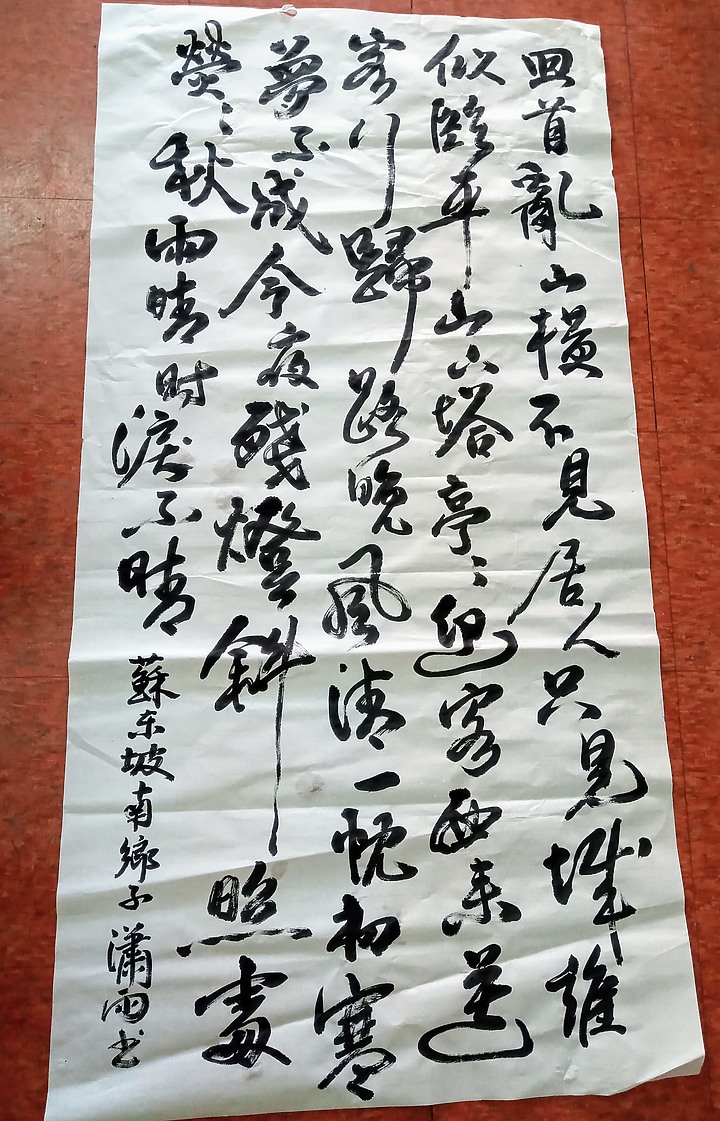 回首亂山横不見居人只見城誰
似臨平山上塔亭〻迎客西来送
客行歸路晚風清一枕初寒
夢不成今夜殘燈斜照處
熒〻秋雨晴时淚不晴
蘇东坡南鄉子 瀟雨书